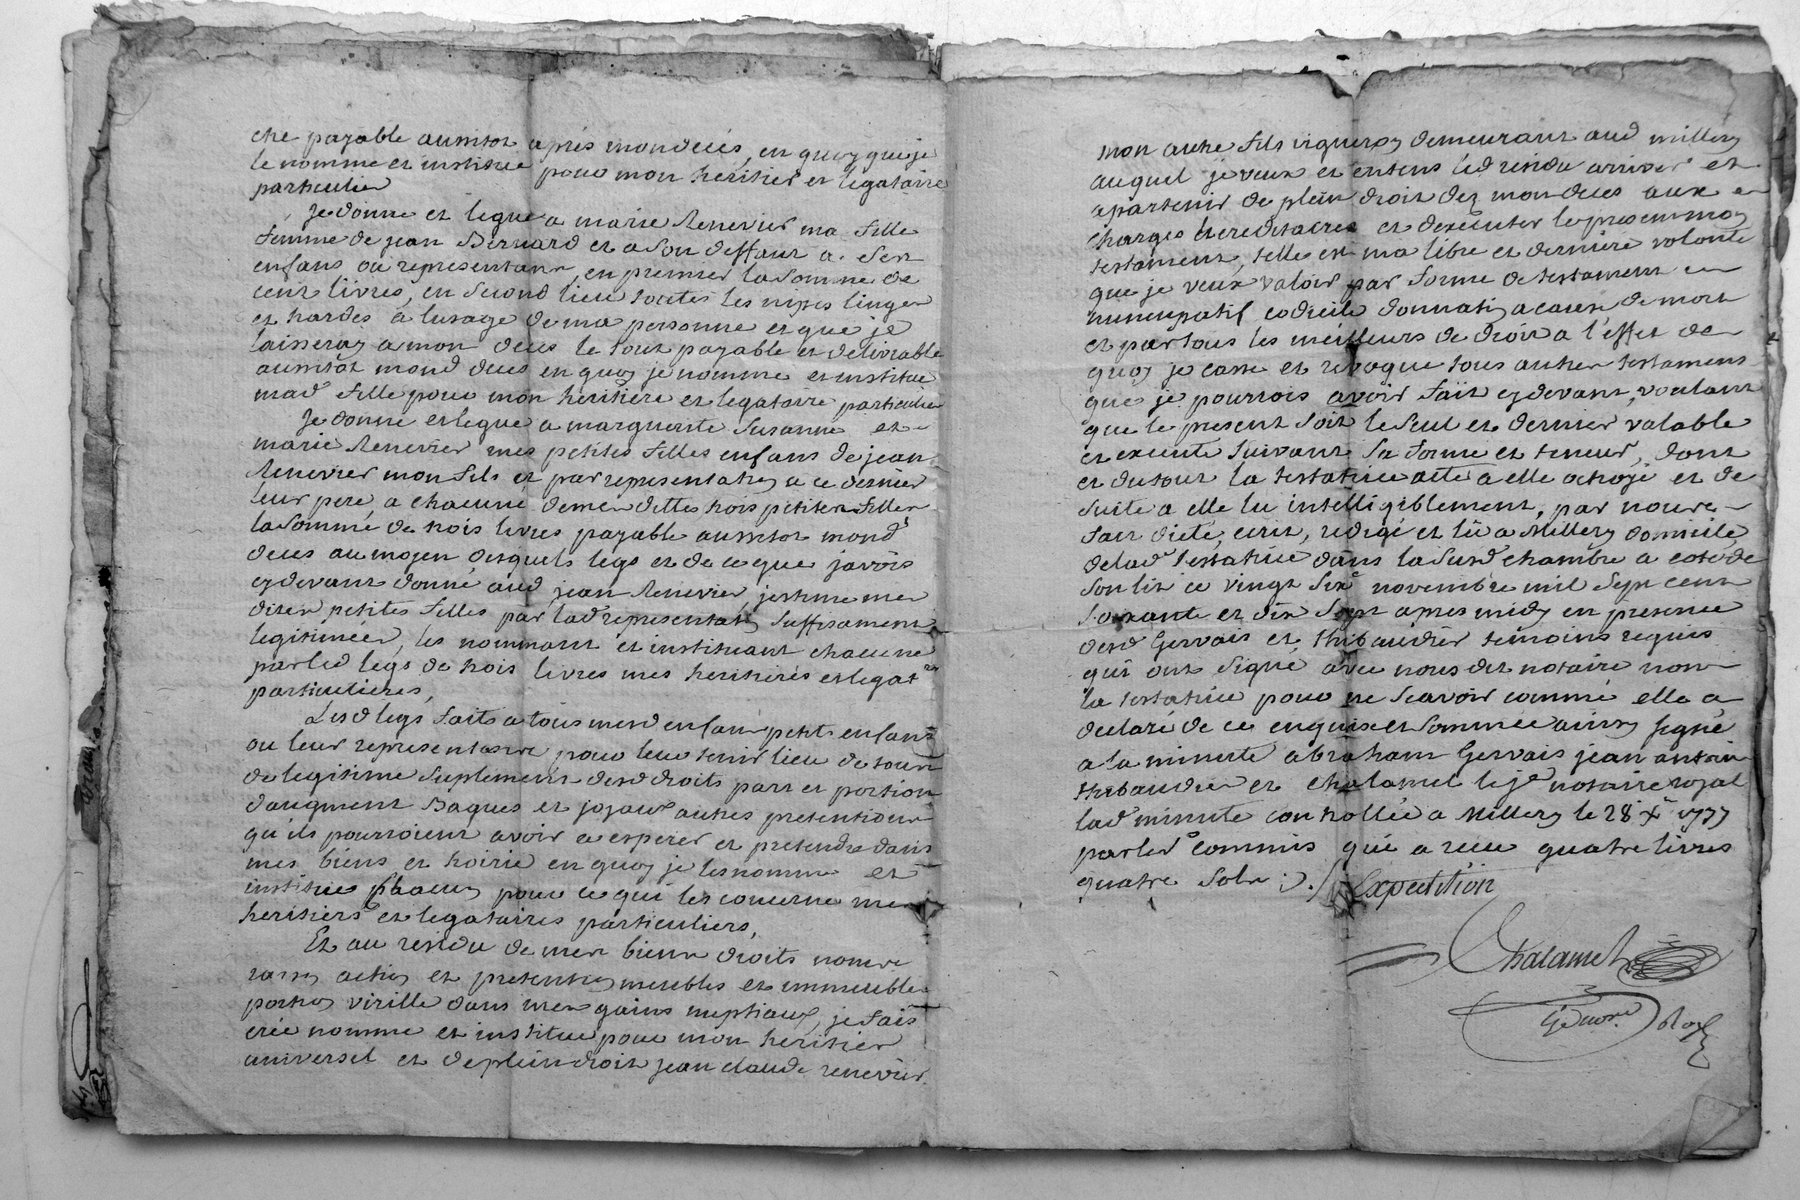 che payable aussitot après mondeces, en quoy que je
le nomme et institue pour mon heritier et legataire
particulier
Je donne et legue a marie Renevier ma fille
femme de jean Bernard et a son deffaut a ses
enfans ou representans, en premier la somme de
cent livres, en second lieu toutes les nipes linges
et hardes a lusage de ma personne et que je
laisseray a mon deces le tout payable et delivrable
aussitot mond deces en quoy je nomme et institue
mad fille pour mon heritiere et legataire particuliere
Je donne et legue a marguerite Suzanne et
marie Renevier mes petites filles enfans de jean
Renevier mon fils et par representation a ce dernier
leur pere, a chacune de mes dittes trois petites filles
la somme de trois livres payable aussitot mond
deces au moyen desquels legs et de ce que javois
cydevant donné aud jean Renevier, jestime mes
dites petites filles par lad representaõn suffisament
legitimées, les nommant et instituant chacune
par led legs de trois livres mes heritieres et legatres
particulieres,
Lesd legs faits a tous mesd enfans petits enfans
ou leur representans pour leur tenir lieu de tous
de legitime suplement desd droits part et portion
daugment Bagues et joyaux autres pretentions
qu'ils pourroient avoir a esperer et pretendre dans
mes biens et hoirie en quoy je les nomme et
institue chacun pour ce qui les concerne mes
heritiers et legataires particuliers,
Et au residu de mes biens droits noms
raison action et pretention meubles et immeubles
portion virille dans mes gains nuptiaux, je fais
crée nomme et institue pour mon heritier
universel et de plein droit jean claude renevier
mon autre fils vigneron demeurant aud millery
auquel je veux et entens led residu arriver et
apartenir de plein droit dez mon deces aux
charges hereditaires et dexecuter le present mon
testament, telle est ma libre et derniere volonté
que je veux valoir par forme de testament
nuncupatif codicile donnation a cause de mort
et par tous les meilleurs de droit a l'effet de
quoy je casse et revoque tous autres testamens
que je pourrois avoir fait cydevant, voulant
que le present soit le seul et dernier valable
et executé suivant sa forme et teneur, dont
et du tout la testatrice acte a elle octroyé et de
suite a elle lu intelligiblement, par nous
fait dicté, ecrit, redigé et lû a Millery domicile
de lad testatrice dans la susd chambre a coté de
son lit ce vingt six novembre mil sept cent
soixante et dix sept apres midy en presence
desd Gervais et thibaudier temoins requis
qui ont signé avec nous dit notaire non
la testatrice pour ne scavoir comme elle a
declaré de ce enquise et sommée ainsy signé
a la minute abraham Gervais jean antoine
thibaudier et chalamel le je notaire royal
lad minute controllée a Millery le 28 X 1777
par led commis qui a recu quatre livres
quatre sols ./. Expedition
Chalamel